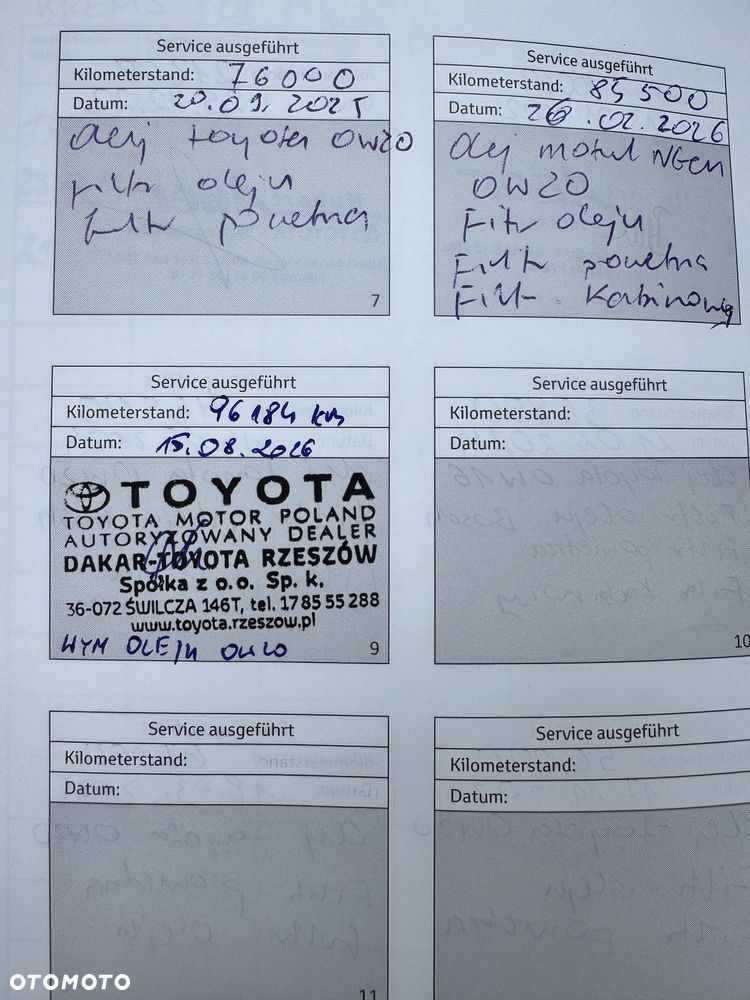 Service ausgeführt
Kilometerstand: 76000
Datum: 20.09.2025
olej toyota 0W20
Filtr oleju
filtr powietrza
7
Service ausgeführt
Kilometerstand: 85500
Datum: 26.02.2026
Olej motul NGEN
0W20
Filtr oleju
Filtr powietrza
Filtr Kabinowy
Service ausgeführt
Kilometerstand: 96184 km
Datum: 15.08.2026
TOYOTA
TOYOTA MOTOR POLAND
AUTORYZOWANY DEALER
DAKAR-TOYOTA RZESZÓW
Spółka z o.o. Sp. k.
36-072 ŚWILCZA 146T, tel. 17 85 55 288
www.toyota.rzeszow.pl
WYM OLEJU 0W20
9
Service ausgeführt
Kilometerstand:
Datum:
10
Service ausgeführt
Kilometerstand:
Datum:
11
Service ausgeführt
Kilometerstand:
Datum:
OTOMOTO